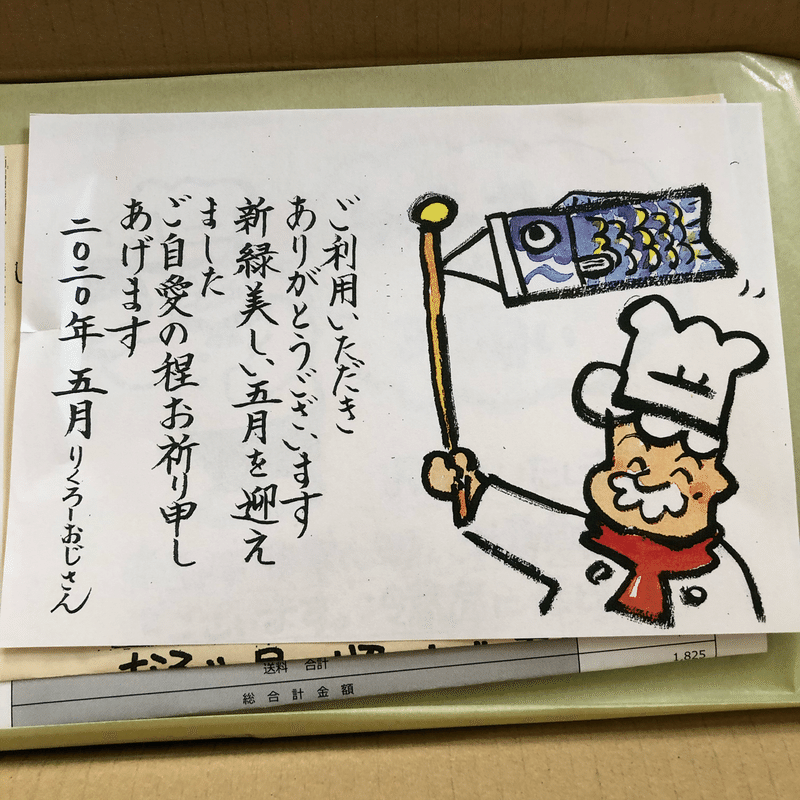 ご利用いただき
ありがとうございます
新緑美しい五月を迎え
ました
ご自愛の程お祈り申し
あげます
二〇二〇年 五月 りくろーおじさん
送料 合計
1,825
総合計金額